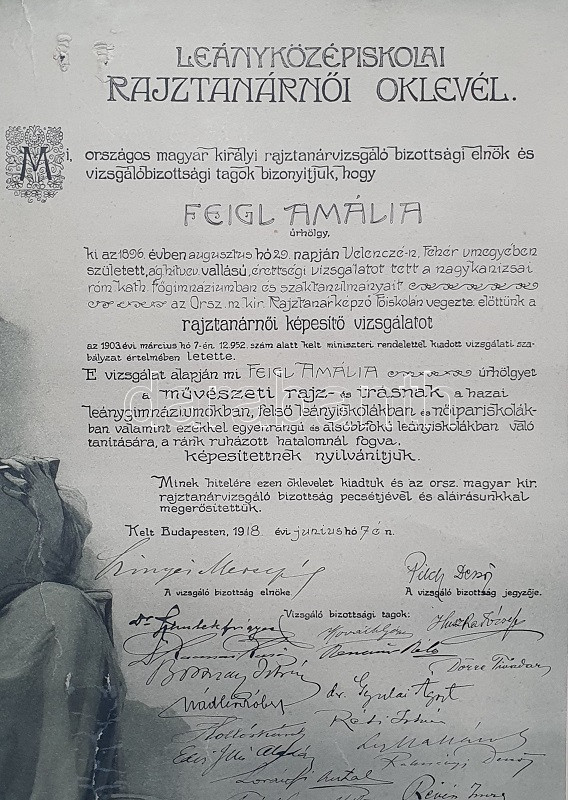 LEÁNYKÖZÉPISKOLAI
RAJZTANÁRNŐI OKLEVÉL.
Mi, országos magyar királyi rajztanárvizsgáló bizottsági elnök és
vizsgálóbizottsági tagok bizonyitjuk, hogy
FEIGL AMÁLIA
úrhölgy,
ki az 1896. évben augusztus hó 29. napján Velenczén, Fehér vmegyében
született, ág. hitv. ev. vallású, érettségi vizsgálatot tett a nagykanizsai
róm. kath. főgimnáziumban és szaktanulmányait
az Orsz. m. kir. Rajztanárképző főiskolán végezte, előttünk a
rajztanárnői képesitő vizsgálatot
az 1903. évi március hó 7-én. 12.952. szám alatt kelt miniszteri rendelettel kiadott vizsgálati sza-
bályzat értelmében letette.
E vizsgálat alapján mi FEIGL AMÁLIA úrhölgyet
a művészeti rajz- és a hazai
leánygimnáziumokban, felső leányiskolákban és nőipariskolák-
ban valamint ezekkel egyenrangú és alsóbbfokú leányiskolákban való
tanitására, a ránk ruházott hatalomnál fogva,
képesitettnek nyilvánitjuk.
Minek hitelére ezen oklevelet kiadtuk és az orsz. magyar kir.
rajztanárvizsgáló bizottság pecsétjével és aláirásunkkal
megerősitettük.
Kelt Budapesten, 1918. évi junius hó 7 én.
Szinyei Merse Pál
Pilch Dezső
A vizsgáló bizottság elnöke.
A vizsgáló bizottság jegyzője.
Vizsgáló bizottsági tagok:
Dr.
Boznay István
Nádler Róbert
dr. Gyulai Ágost
Dörre Tivadar
Réti István
Edvi Illés Aladár
Loránfi Antal
Révész Imre
darabanth